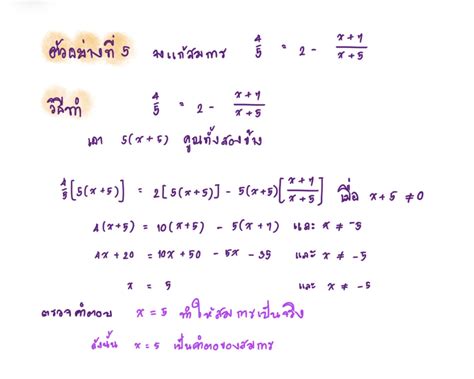 ตัวอย่างที่ 5 จงแก้สมการ 4/5 = 2 - (x+7)/(x+5)
วิธีทำ 4/5 = 2 - (x+7)/(x+5)
เอา 5(x+5) คูณทั้งสองข้าง
4/5[5(x+5)] = 2[5(x+5)] - 5(x+5)[(x+7)/(x+5)] เมื่อ x+5 ≠ 0
4(x+5) = 10(x+5) - 5(x+7) และ x ≠ -5
4x+20 = 10x+50 - 5x - 35 และ x ≠ -5
x = 5 และ x ≠ -5
ตรวจคำตอบ x = 5 ทำให้สมการเป็นจริง
ดังนั้น x = 5 เป็นคำตอบของสมการ